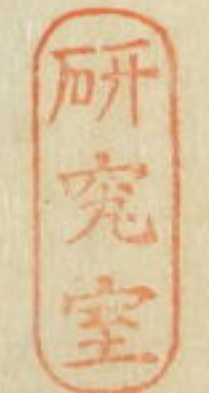 研究室